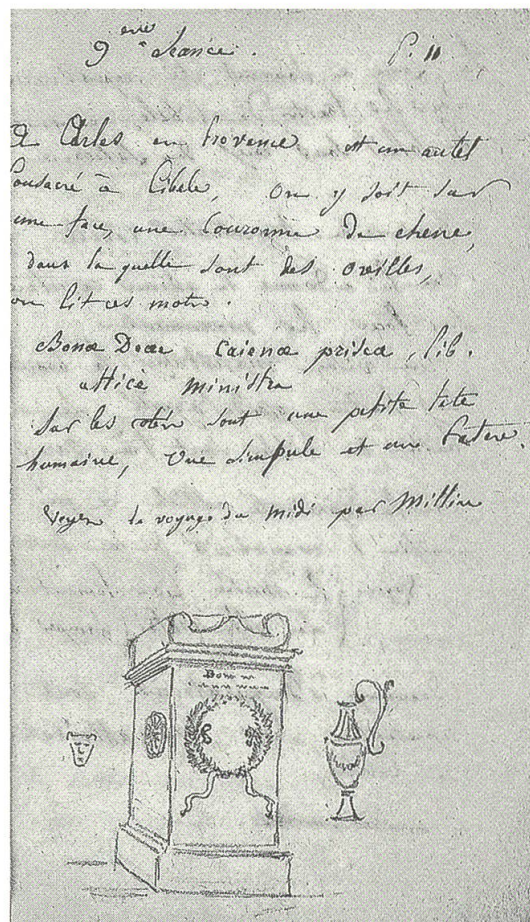 9 eme Séance. P. 11
A Arles en Provence est un autel
Consacré à Cibele, on y voit sur
une face, une Couronne de chene,
dans la quelle sont des oreilles,
on lit ces mots.
Bonæ Deæ Caienæ prisca, lib.
attice ministra
Sur les cotés sont une petite tete
humaine, une simpule et une Patere.
Voyez le voyage du midi par Millin
Bonæ